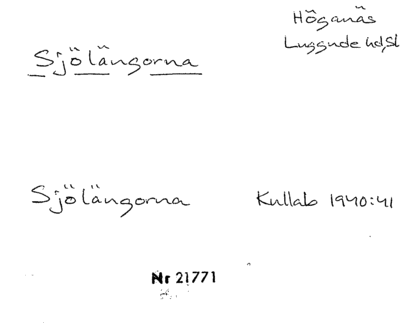 Höganäs
Luggude hd, Sk
Sjölängorna
Sjölängorna Kullab 1940:41
Nr 21771